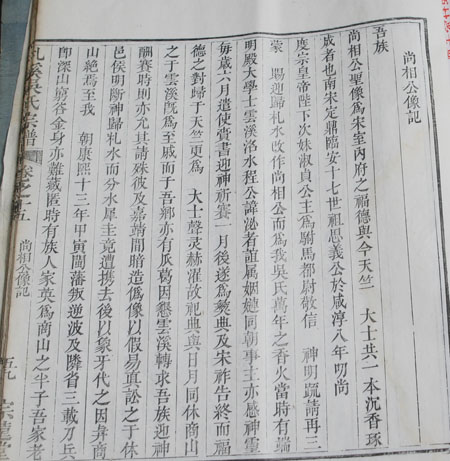 尚相公像記
吾族
尚相公聖像為宋室內府之福德與今天竺　大士共一本沉香琢
成者也南宋定鼎臨安十七世祖思義公於咸淳八年叨尚
度宗皇帝陛下次妹淑貞公主為駙馬都尉敬信　神明疏請再三
蒙　賜迎歸札水改作尚相公而為我吳氏萬年之香火當時有端
明殿大學士雲溪洛水程公諱泌者誼屬姻婕同朝事主亦感神靈
每歲六月遣使賫書迎神祈賽一月後遂為彝典及宋祚告終而福
德之對歸于天竺更為　大士聲灵赫濯故祀典與日月同休商山
之于雲溪旣為至戚而于吾鄉亦有瓜葛因懇雲溪轉求吾族迎神
酬賽時則亦允其請殊彼及嘉靖間暗造為像以假易真訟之于休
邑侯明斷神歸札水而分水犀圭竟遭攜去後以象牙代之因弃商
山絶焉至我　朝康熙十三年甲寅閩藩叛逆波及隣省三載刀兵
卽深山窮谷金身亦難藏匿時有族人家英為商山之半子吾家老
氏宗譜
卷之十五
尚相公像記
五九